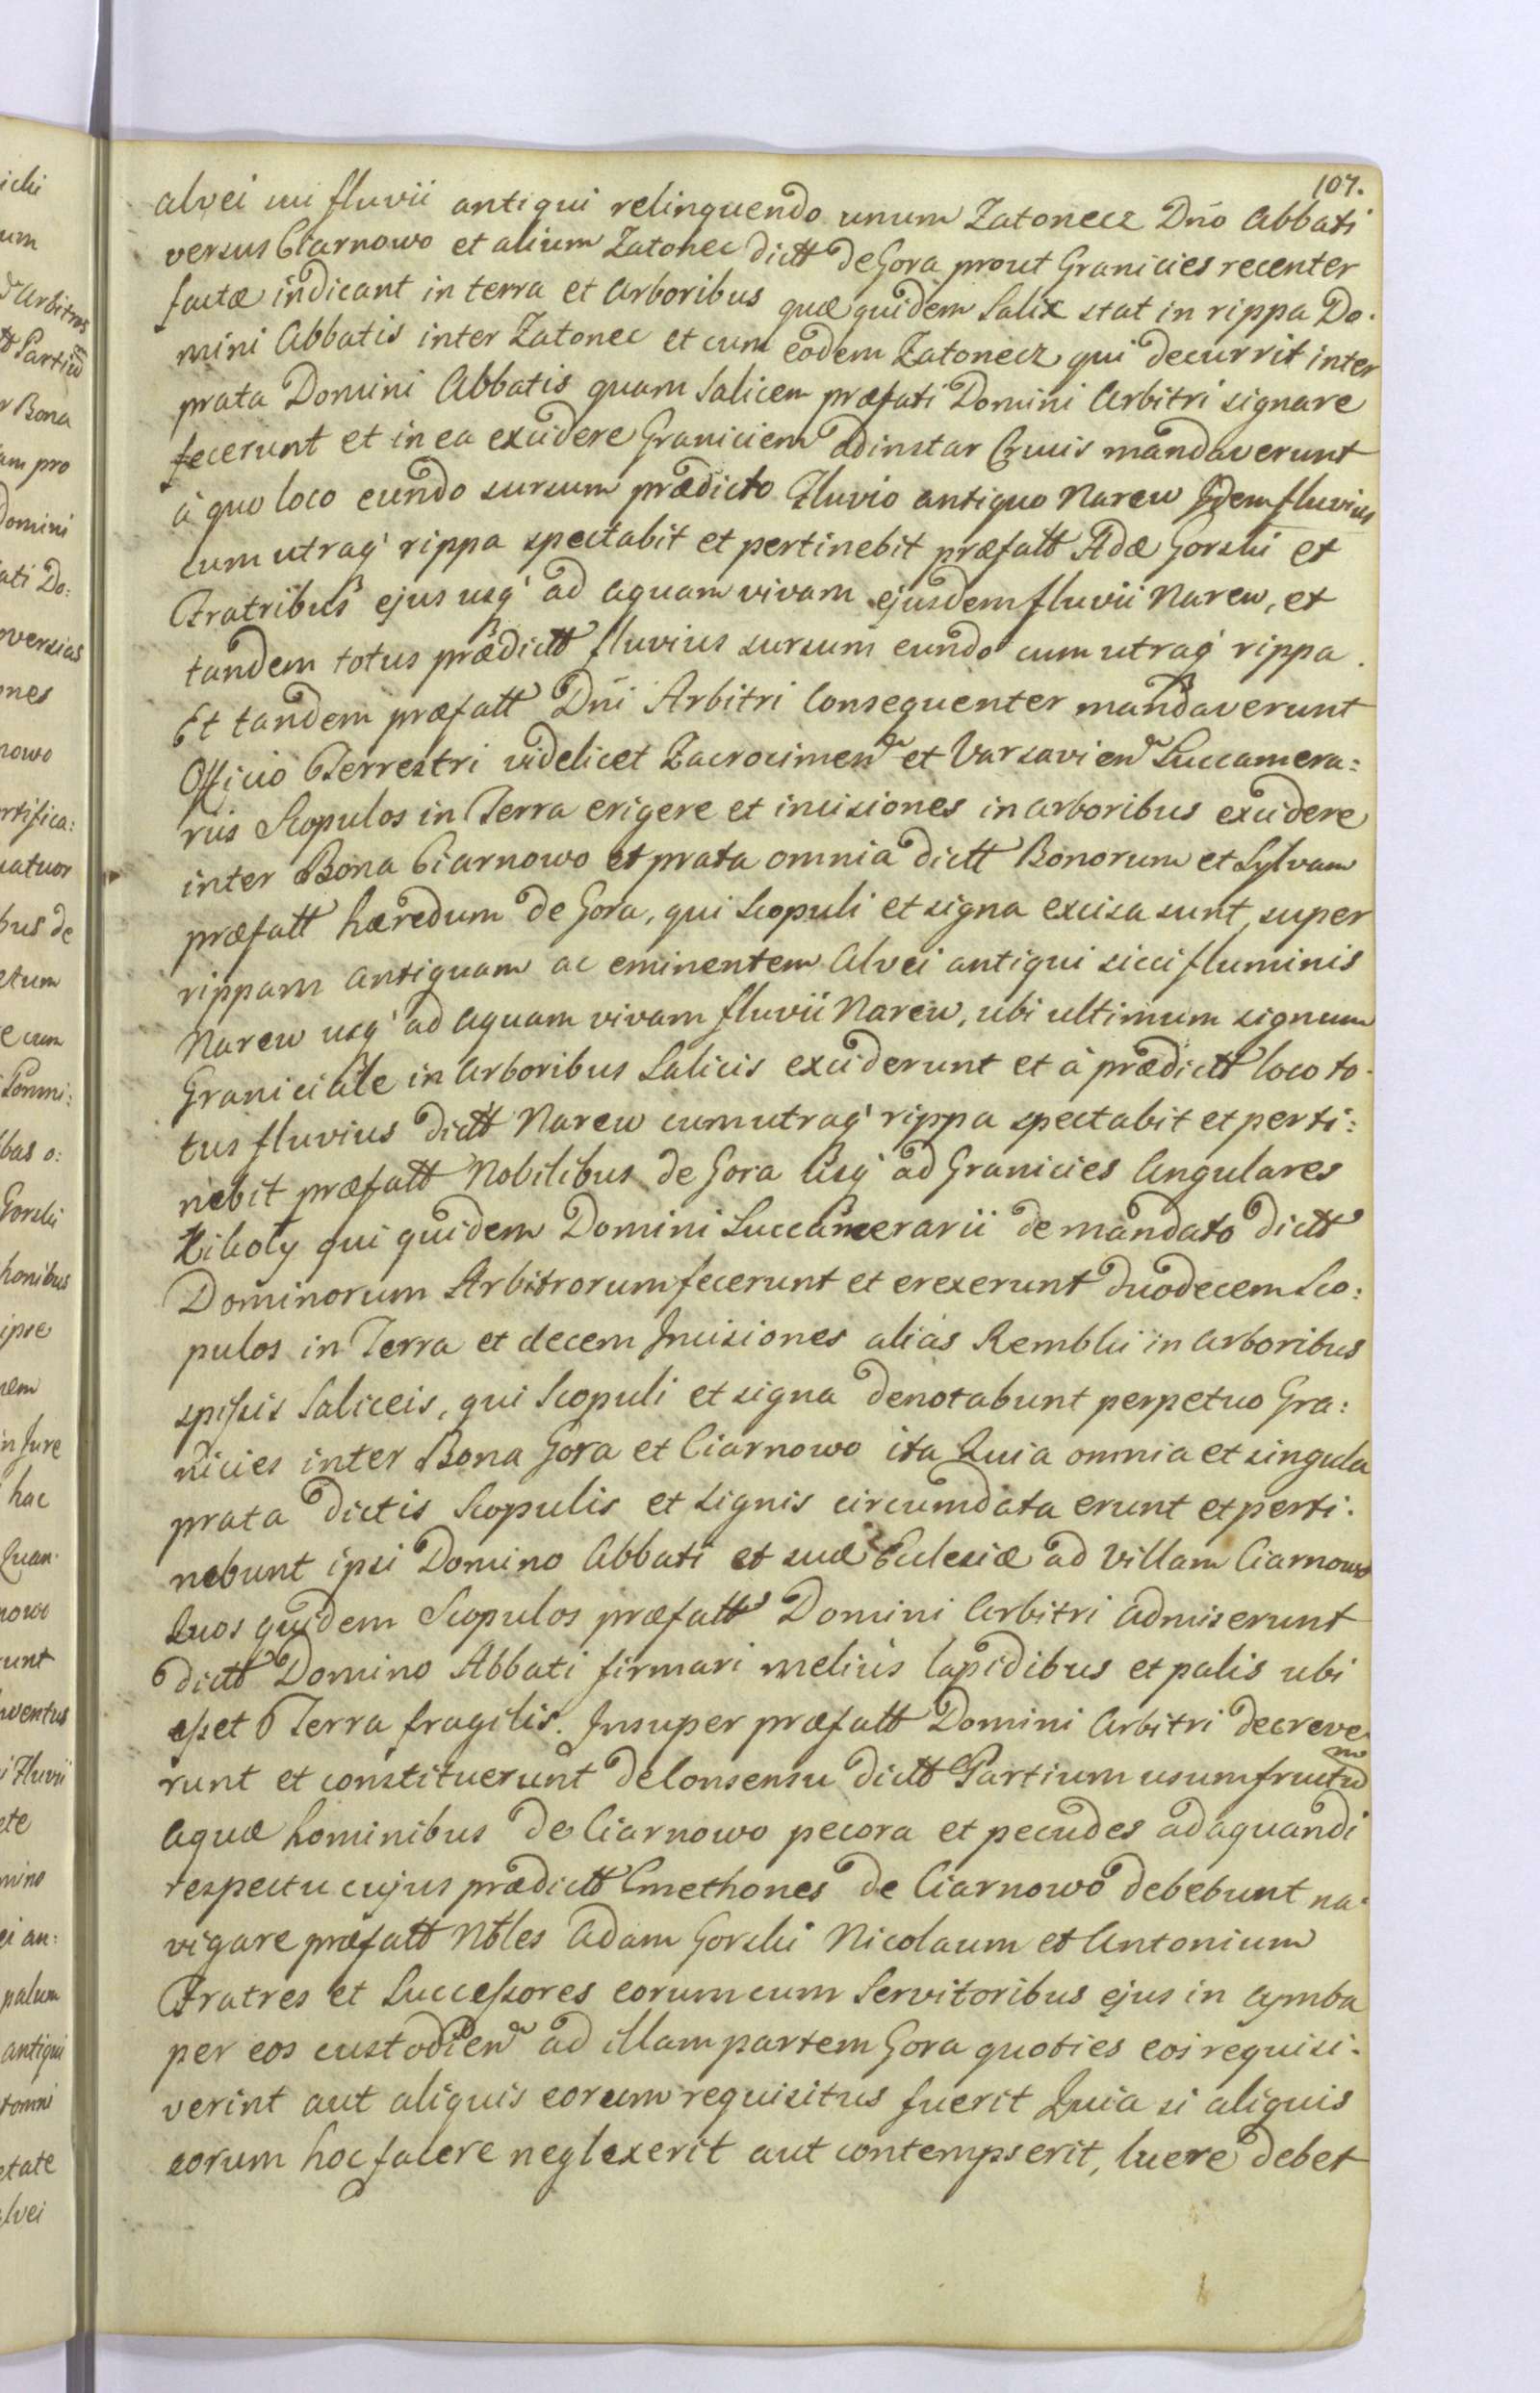 107.
alvei sui fluvii antiqui relinquendo unum Zatonecz Dno Abbati
versus Czarnowo et alium Zatonec dictt de Gora prout Granicies recenter
factæ indicant in terra et Arboribus quæ quidem Salix stat in rippa Do.
mini Abbatis inter Zatonec et cum eodem Zatonecz qui decurrit inter
prata Domini Abbatis quam Salicem præfati Domini Arbitri signare
fecerunt et in ea excidere Graniciem adinstar Crucis mandaverunt
à quo loco eundo sursum prædicto Fluvio antiquo Narew Idem fluvius
cum utraq' rippa spectabit et pertinebit præfatt Adæ Gorski et
Fratribus ejus usq' ad aquam vivam ejusdem fluvii Narew, et
tandem totus prædictt fluvius sursum eundo cum utraq' rippa.
Et tandem præfatt Dni Arbitri Consequenter mandaverunt
Officio Terrestri videlicet Zacrocimen et Varsavien Succamera:
riis Scopulos in Terra erigere et incisiones in arboribus excidere
inter Bona Czarnowo et prata omnia dictt Bonorum et Sylvam
præfatt hæredum de Gora, qui Scopuli et signa excisa sunt, super
rippam antiquam ac eminentem Alvei antiqui sicci fluminis
Narew usq' ad aquam vivam fluvii Narew, ubi ultimum signum
Graniciale in Arboribus Salicis exciderunt et à prædictt loco to-
tus fluvius dictt Narew cum utraq' rippa spectabit et perti:
nebit præfatt Nobilibus de Gora usq' ad Granicies Angulares
qui quidem Domini Succamerarii de mandato dictt
Dominorum Arbitrorum fecerunt et erexerunt duodecem Sco:
pulos in Terra et decem Incisiones alias Remblii in Arboribus
spissis Saliceis, qui Scopuli et signa denotabunt perpetuo Gra:
nicies inter Bona Gora et Czarnowo ita Quia omnia et singula
prata dictis Scopulis et signis circumdata erunt et perti.
nebunt ipsi Domino Abbati et suæ Ecclesiæ ad Villam Czarnowo
Quos quidem Scopulos præfatt Domini Arbitri admiserunt
dictt Domino Abbati firmari melius lapidibus et palis ubi
esset Terra fragilis. Insuper præfatt Domini Arbitri decreve
runt et constituerunt de Consensu dictt Partium usumfructum
aquæ hominibus de Czarnowo pecora et pecudes adaquandi
respectu cujus prædictt Cmethones de Czarnowo debebunt na:
vigare præfatt Nbles Adam Gorski Nicolaum et Antonium
Fratres et Successores eorum cum Servitoribus ejus in cymba
per eos custodien ad illam partem Gora quoties eos requisi.
verint aut aliquis eorum requisitus fuerit Quia si aliquis
eorum hoc facere neglexerit aut contempserit, luere debet